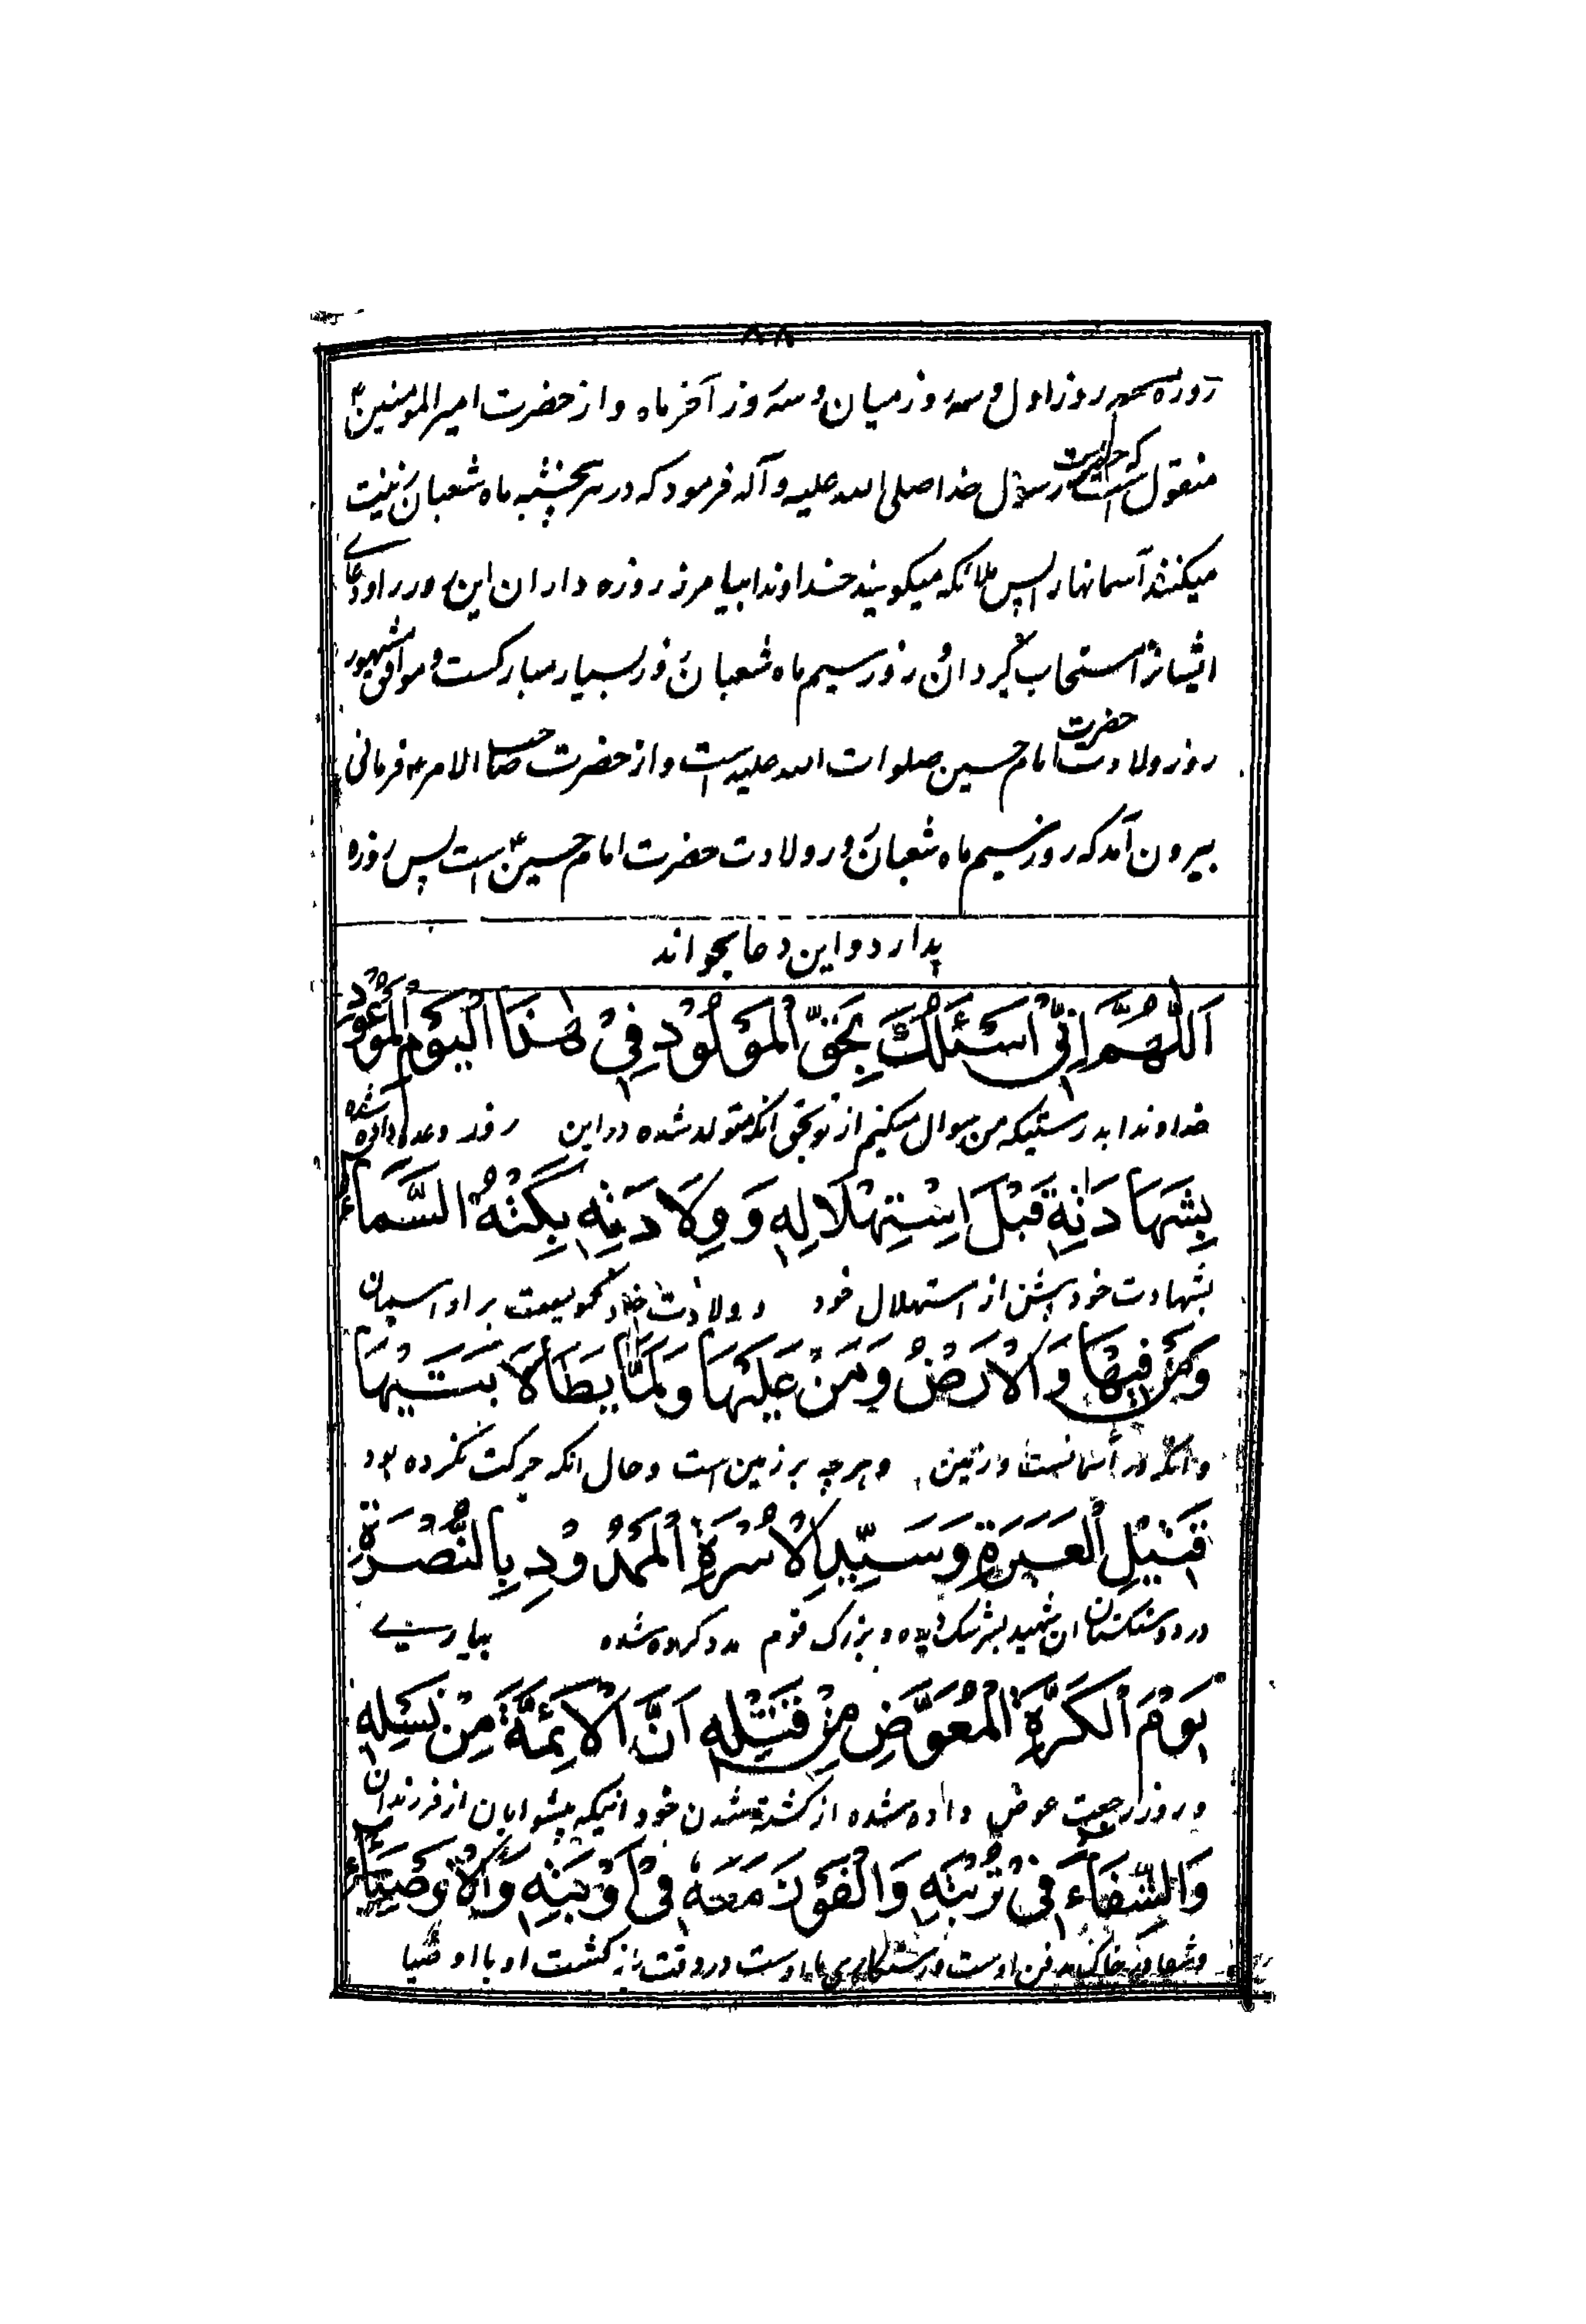 ۸۸
روزه سه روز اول و سه روز میان و سه روز آخر ماه و از حضرت امیرالمومنین ۴
منقول است که حضرت رسول خدا صلی الله علیه و آله فرمود که در هر پنجشنبه ماه شعبان زینت
میکنند آسمانها را پس ملائکه میکویند خداوندا بیامرز روزه داران این روز را و دعای
ایشانرا مستجاب گردان و روز سیم ماه شعبان روز بسیار مبارکست و موافق مشهور
روز ولادت حضرت امام حسین صلوات الله علیه است و از حضرت صاحب الامر ۴ فرمانی
بیرون آمد که روز سیم ماه شعبان روز ولادت حضرت امام حسین ۴ است پس روزه
بدارد و این دعا بخواند
اَللّٰهُمَّ اِنِّیْ اَسْئَلُكَ بِحَقِّ الْمَوْلُوْدِ فِیْ هٰذَا الْیَوْمِ الْمَوْعُوْدِ
خداوندا بدرستیکه من سوال میکنم از تو بحق آنکه متولد شده در این روز وعده داده شده
بِشَهَادَتِهِ قَبْلَ اسْتِهْلَالِهِ وَ وِلَادَتِهِ بَكَتْهُ السَّمَاءُ
بشهادت خود پیش از استهلال خود و ولادت خود گریست بر او اسمان
وَمَنْ فِیْهَا وَالْاَرْضُ وَمَنْ عَلَیْهَا وَلَمَّا یَطَأْ لَابَتَیْهَا
و آنکه در آسمانست و زمین و هرچه بر زمین است و حال انکه حرکت نکرده بود
قَتِیْلِ الْعَبَرَةِ وَسَیِّدِ الْاُسْرَةِ الْمَمْدُوْدِ بِالنُّصْرَةِ
در دو سنکستان ان شهید بسرشک دیده و بزرک قوم مدد کرده شده بیاری
یَوْمَ الْكَرَّةِ الْمُعَوَّضِ مِنْ قَتْلِهِ اَنَّ الْاَئِمَّةَ مِنْ نَسْلِهِ
در روز رجعت عوض داده شده از کشته شدن خود اینکه پیشوایان از فرزندان
وَالشِّفَاءَ فِیْ تُرْبَتِهِ وَالْفَوْزَ مَعَهُ فِیْ اَوْبَتِهِ وَالْاَوْصِیَاءَ
و شفا در خاک مدفن اوست و رستگاری با اوست در وقت بازکشت او با اوصیا